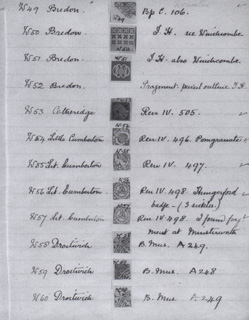 W49 Bredon. Bp C. 106.
W50 Bredon T.H. see Winchcombe.
W51 Bredon. T.H. also Winchcombe.
W52 Bredon. Fragment. mural outline T.H.
W53 Cotheridge Ren IV. 505.
W54 Little Comberton Ren IV. 496. Pomegranates
W55 Lit. Comberton Ren IV. 497.
W56 Lit. Comberton. Ren IV 498 Hungerford
badge - (3 sickles)
W57 Lit. Comberton Ren IV. 498. I found frag
ment at
W58 Droitwich B. Mus. A 269.
W59 Droitwich B. Mus. A 248
W60 Droitwich. B. Mus. A 249